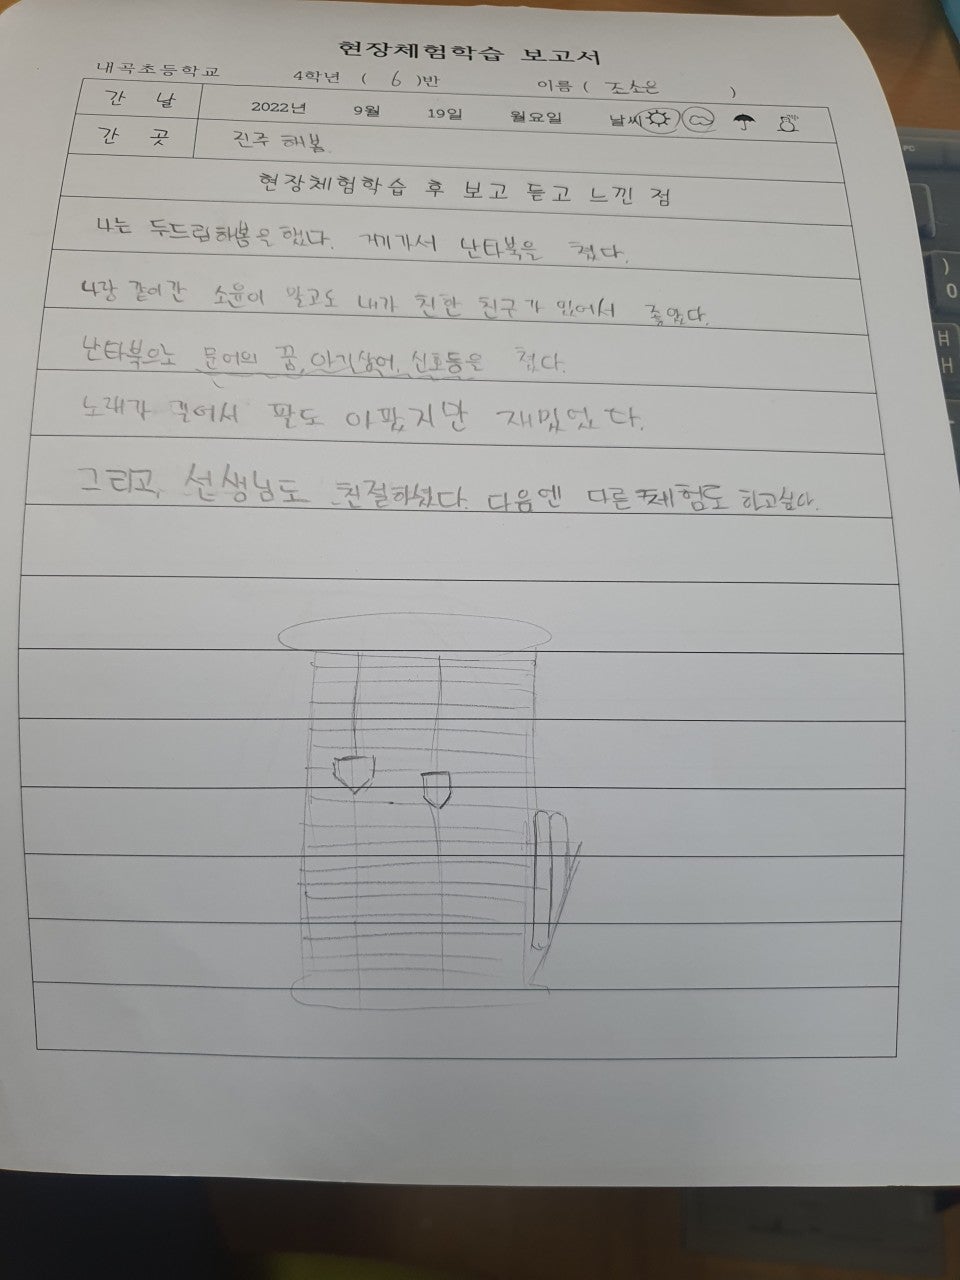 현장체험학습 보고서
내곡초등학교 4학년 ( 6 )반 이름 ( 조소은 )
간 날 2022년 9월 19일 월요일 날씨
간 곳 진주 해봄
현장체험학습 후 보고 듣고 느낀 점
나는 두드림해봄을 했다. 거기가서 난타북을 쳤다.
나랑 같이간 소윤이 말고도 내가 친한 친구가 있어서 좋았다.
난타북으로 문어의 꿈, 아기상어, 신호등을 쳤다.
노래가 길어서 팔도 아팠지만 재밌었다.
그리고, 선생님도 친절하셨다. 다음엔 다른 체험도 하고싶다.
PC
)
0
ㅐ
H